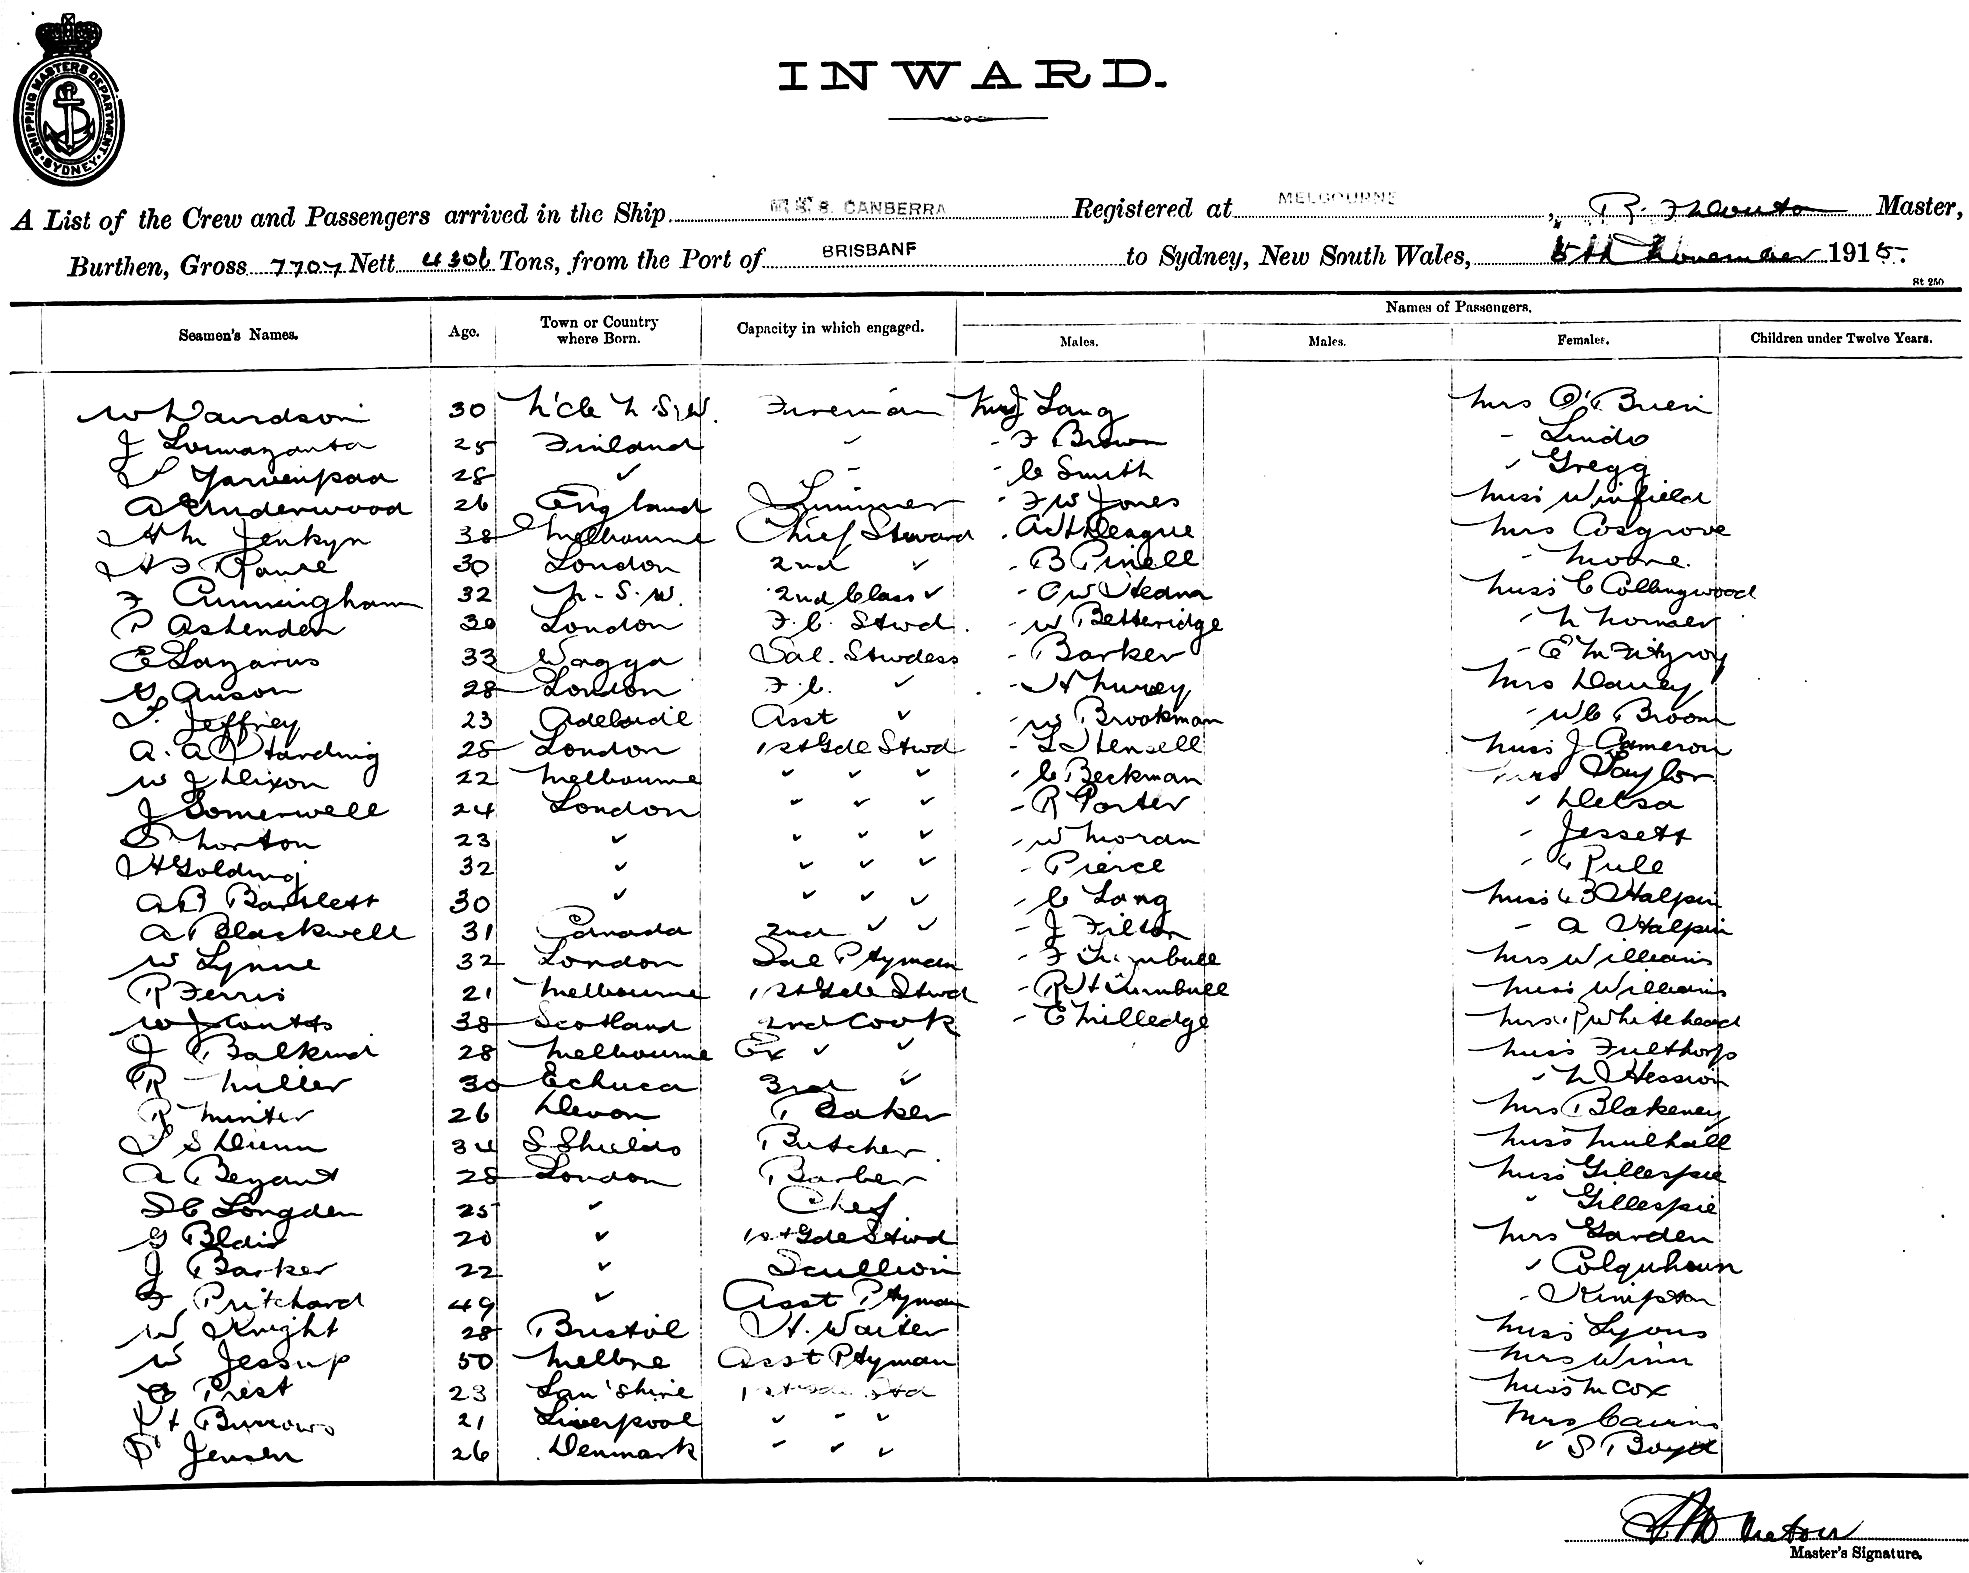 SHIPPING MASTERS DEPARTMENT
SYDNEY
INWARD.
A List of the Crew and Passengers arrived in the Ship S. CANBERRA Registered at MELBOURNE, R. Master,
Burthen, Gross 7707 Nett 4306 Tons, from the Port of BRISBANE to Sydney, New South Wales, 5th November 1915.
St 250
Names of Passengers.
Seamen's Names. Age. Town or Country where Born. Capacity in which engaged. Males. Males. Females. Children under Twelve Years.
W Davidson 30 N'cle N.S.W. Fireman Lang Mrs O'Brien
J 25 Finland - - F Brown - Lindo
Jarvenpaa 28 ✓ - - C Smith ✓ Gregg
Underwood 26 England Trimmer - F W Jones Miss Winfield
H M Jenkyn 38 Melbourne Chief Steward - A H Deague Mrs Cosgrove
H F 30 London 2nd ✓ - B Pinell - Moore.
F Cunningham 32 N.S.W. 2nd Class ✓ - O W Miss C Collingwood
P Ashenden 30 London F.C. Stwd. - W Betteridge - N
E Lazarus 33 Wagga Sal. Stwdess - Barker - E M Fitzroy
G Anson 28 London F.C. ✓ - H Mrs Davey
Jeffrey 23 Adelaide Asst ✓ - W Brookman - W C Broom
A. A Harding 28 London 1st Gde Stwd - L Hensell Miss J Cameron
W J Dixon 22 Melbourne ✓ ✓ ✓ - C Beckman Mrs Taylor
J Somerwell 24 London ✓ ✓ ✓ - R Porter ✓ Delsa
S Morton 23 ✓ ✓ ✓ ✓ - W Moran - Jessett
H Golding 32 ✓ ✓ ✓ ✓ - Pierce - Pule
A B Bartlett 30 ✓ ✓ ✓ ✓ - C Lang Miss Halpin
A Blackwell 31 Canada 2nd ✓ ✓ - J Filton - A Halpin
W Lynne 32 London Sal Ptyman - F Turnbull Mrs Williams
R Ferris 21 Melbourne 1st Gde Stwd - R H Turnbull Miss Williams
W J Coutts 38 Scotland 2nd Cook - E Milledge Mrs Whitehead
J 28 Melbourne Ex ✓ ✓ Miss Fulthorp
R Miller 30 Echuca 3rd ✓ - N Hession
R Minter 26 Devon Baker Mrs Blakeney
S Dunn 34 S Shields Butcher. Miss Mulhall
A Bryant 28 London Barber Miss Gillespie
S C Longden 25 ✓ Chef ✓ Gillespie
G Blair 20 ✓ 1st Gde Stwd Mrs Garden
J Barker 22 ✓ Scullion ✓ Colquhoun
F Pritchard 49 ✓ Asst Ptyman - Kimpton
W Knight 28 Bristol H. Waiter Miss Lyons
W Jessup 50 Melbne Asst Ptyman Mrs Winn
Prest 23 Lan'shire 1st Gde Std Miss M Cox
H Burrows 21 Liverpool ✓ - ✓ Mrs Cairns
Jensen 26 Denmark - ✓ ✓ ✓ S Boyd
Master's Signature.